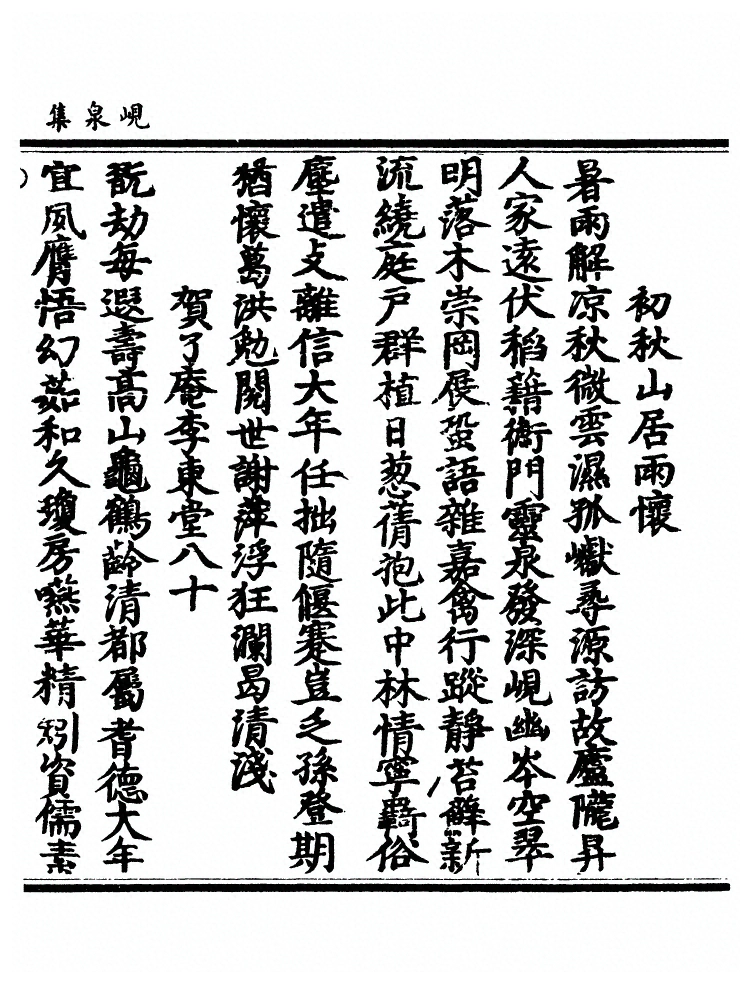 峴泉集
初秋山居雨懷
暑雨解凉秋微雲濕孤巘尋源訪故廬隴昇
人家遠伏稻藉衡門靈泉發深峴幽岑空翠
明落木崇岡展蛩語雜嘉禽行蹤靜苔蘚新
流繞庭戶群植日葱蒨抱此中林情寧羇俗
塵遣攴離信大年任拙隨偃蹇豈乏孫登期
猶懷葛洪勉閱世謝萍浮狂瀾曷清淺
賀了庵李東堂八十
翫劫每遐壽髙山龜鶴齡清都屬耆德大年
宜夙膺悟幻茹和久瓊房嚥華精矧資儒素